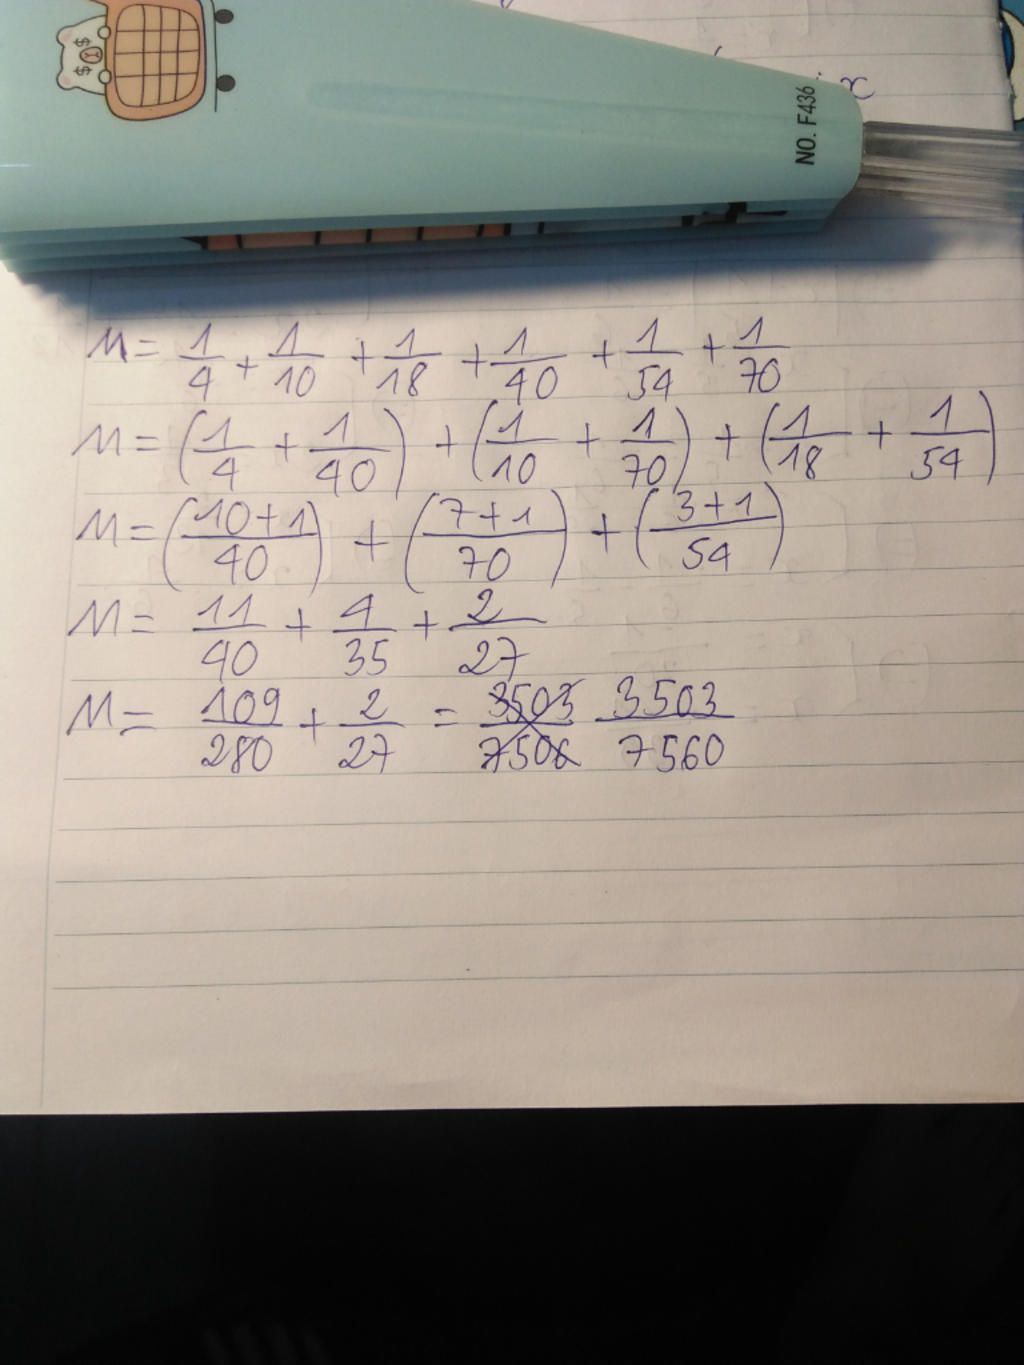 x
NO. F436
M = 1/4 + 1/10 + 1/18 + 1/40 + 1/54 + 1/70
M = (1/4 + 1/40) + (1/10 + 1/70) + (1/18 + 1/54)
M = (10+1/40) + (7+1/70) + (3+1/54)
M = 11/40 + 4/35 + 2/27
M = 109/280 + 2/27 = 3503/7506 3503/7560